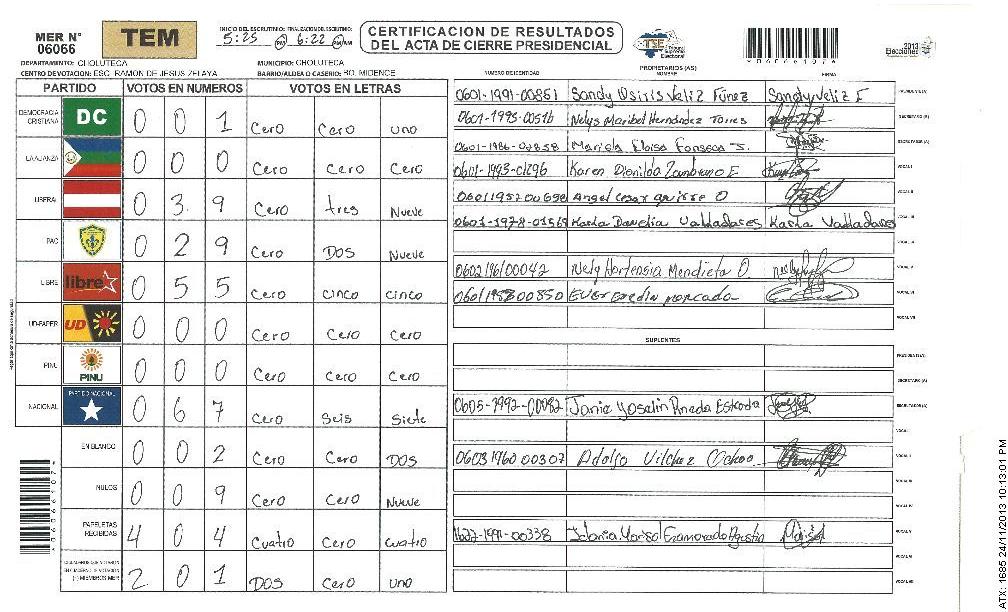 MER N° 06066
TEM
INICIO DEL ESCRUTINIO: 5:25 PM FINALIZACION DEL ESCRUTINIO: 6:22 PM AM
CERTIFICACION DE RESULTADOS
DEL ACTA DE CIERRE PRESIDENCIAL
TSE Tribunal Supremo Electoral
2013
Elecciones
DEPARTAMENTO: CHOLUTECA MUNICIPIO: CHOLUTECA
CENTRO DE VOTACION: ESC. RAMON DE JESUS ZELAYA BARRIO/ALDEA O CASERIO: BO. MIDENCE
PARTIDO VOTOS EN NUMEROS VOTOS EN LETRAS
DEMOCRACIA CRISTIANA DC 0 0 1 Cero Cero uno
LA ALIANZA 0 0 0 Cero Cero Cero
LIBERAL 0 3 9 Cero tres Nueve
PAC 0 2 9 Cero DOS Nueve
LIBRE libre 0 5 5 Cero cinco cinco
UD-FAPER UD 0 0 0 Cero Cero Cero
PINU PINU 0 0 0 Cero Cero Cero
NACIONAL PARTIDO NACIONAL 0 6 7 Cero Seis Siete
EN BLANCO 0 0 2 Cero Cero DOS
NULOS 0 0 9 Cero Cero Nueve
PAPELETAS RECIBIDAS 4 0 4 Cuatro Cero cuatro
2 0 1 DOS Cero uno
NUMERO DE IDENTIDAD PROPIETARIOS (AS) NOMBRE FIRMA
0601-1991-00851 Sandy Osiris Veliz Fúnez Sandy Veliz F PRESIDENTE(A)
0601-1995-00516 Nelys Maribel Hernández Torres SECRETARIO (A)
0601-1986-02858 Mariela Eloisa Fonseca S.
0601-1993-01296 Karen Dionilda Zambrano E VOCAL I
0601195200698 Angel cesar aguirre O VOCAL II
0601-1978-01569 Karla Danelia Valladares Karla Valladares VOCAL III
0602196100042 Nely Hortensia Mendieta O. VOCAL V
0601195300850 Ever Eredin mercado VOCAL VI
SUPLENTES
PRESIDENTE(A)
SECRETARIO (A)
0605-1992-00082 Janie Yoselin Pineda Estrada
VOCAL I
0603196000307 Adolfo Vilchez Ochoa VOCAL II
VOCAL III
VOCAL IV
1622-1991-00338 Idania Marisol Enamorado Agustin VOCAL V
VOCAL VI
VOCAL VII
ATX: 1685 24/11/2013 10:13:01 PM